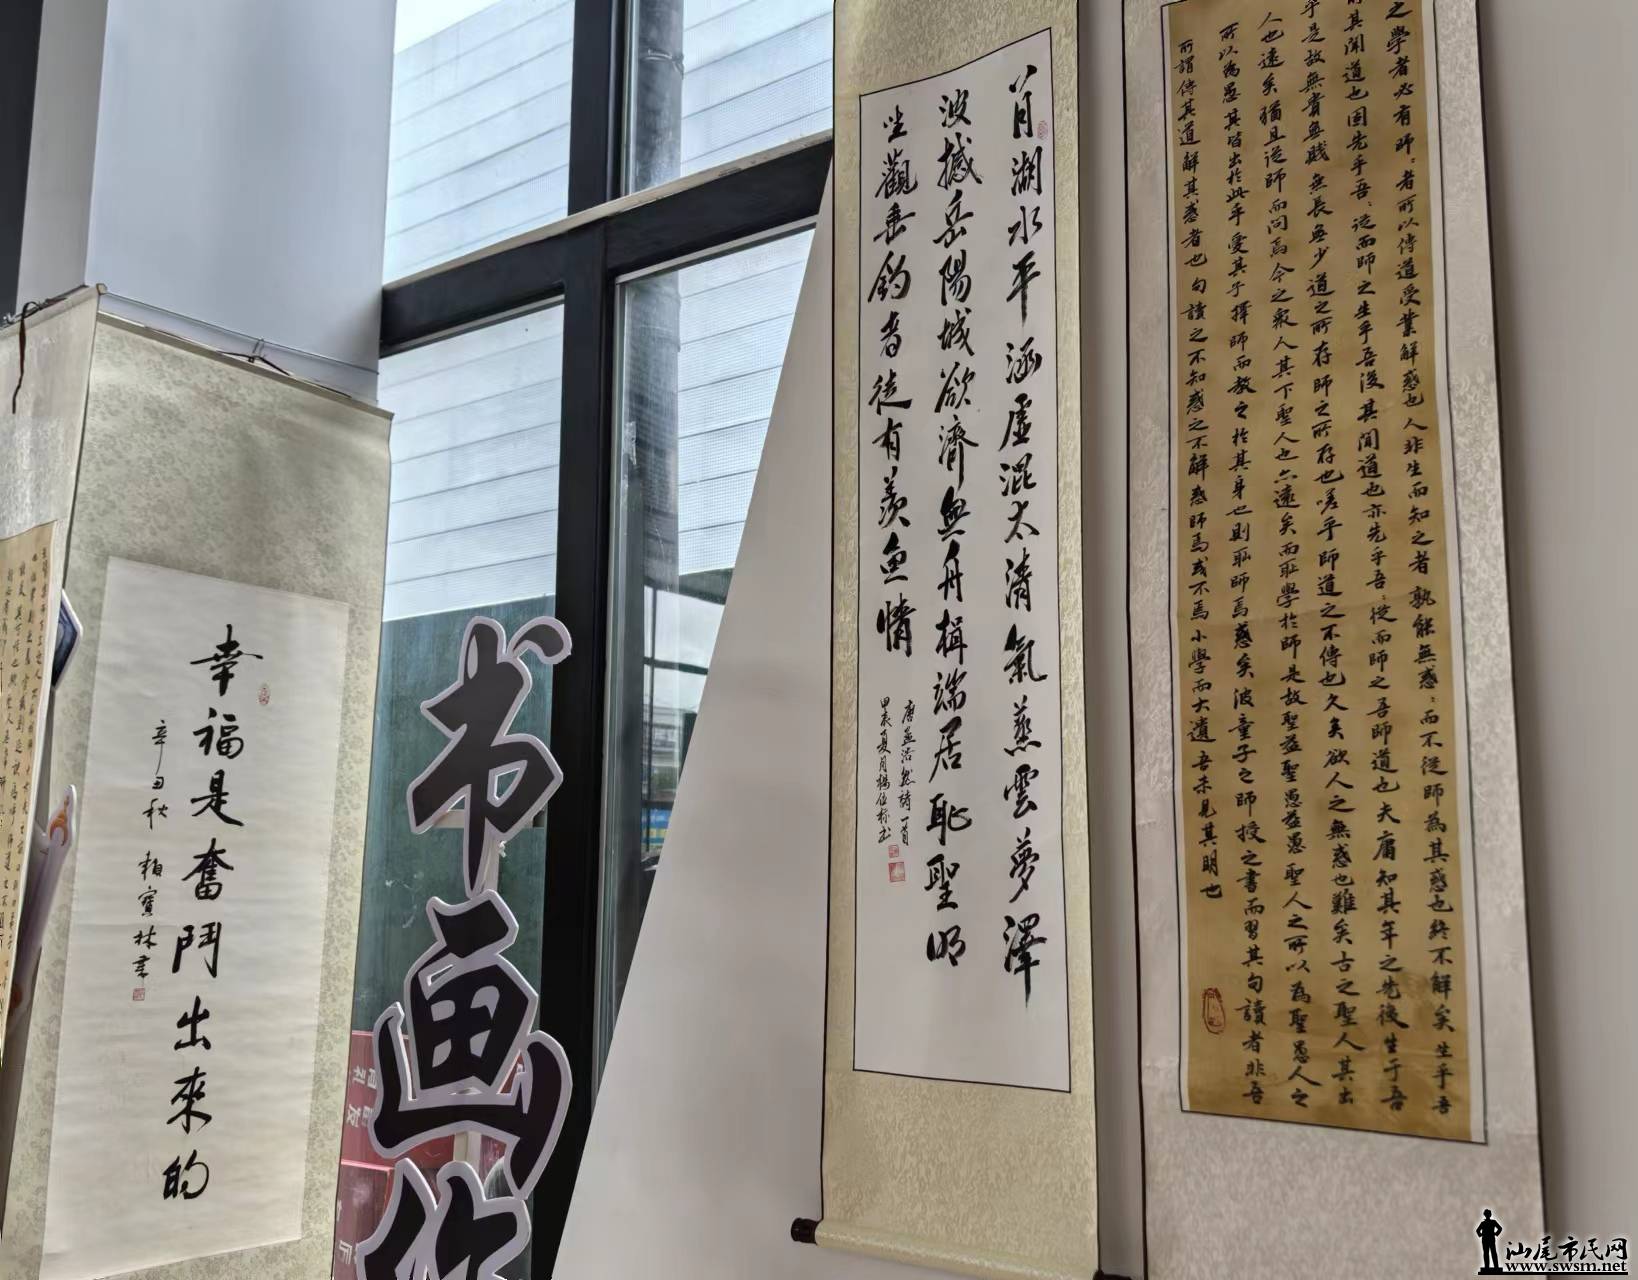 幸福是奮鬥出來的
辛丑秋 賴寶林書
书画作
八月湖水平涵虛混太清氣蒸雲夢澤
波撼岳陽城欲濟無舟楫端居恥聖明
坐觀垂釣者徒有羨魚情
唐孟浩然詩一首
甲辰夏月楊位标书
之學者必有師:者所以傳道受業解惑也人非生而知之者孰能無惑:而不從師為其惑也終不解矣生乎吾
前其聞道也固先乎吾:從而師之生乎吾後其聞道也亦先乎吾:從而師之吾師道也夫庸知其年之先後生于吾
乎是故無貴無賤無長無少道之所存師之所存也嗟乎師道之不傳也久矣欲人之無惑也難矣古之聖人其出
人也遠矣猶且從師而問焉今之衆人其下聖人也亦遠矣而恥學於師是故聖益聖愚益愚聖人之所以為聖愚人之
所以為愚其皆出於此乎愛其子擇師而教之於其身也則恥師焉惑矣彼童子之師授之書而習其句讀者非吾
所謂傳其道解其惑者也句讀之不知惑之不解惑師焉或不焉小學而大遺吾未見其明也
汕尾市民网
www.swsm.net